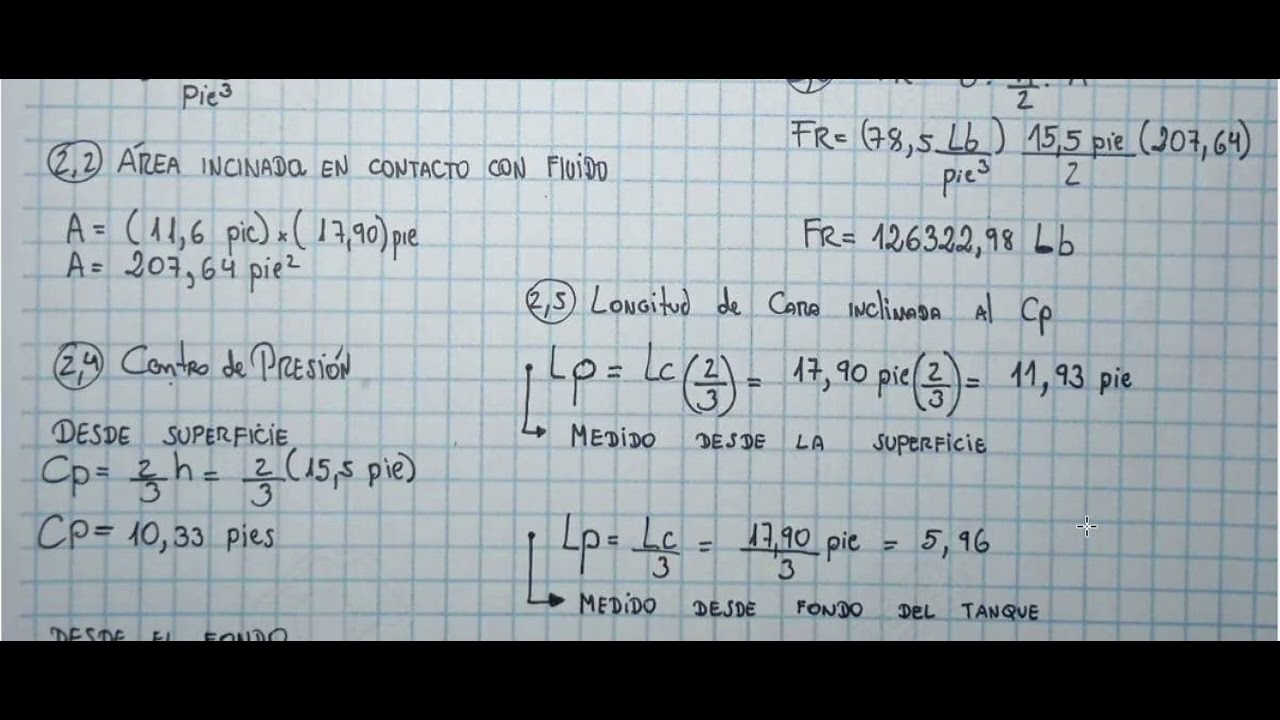 Pie³
2,2 ÁREA INCINADA EN CONTACTO CON FLUIDO
A = (11,6 pie) × (17,90) pie
A = 207,64 pie²
2,4 Centro de PRESIÓN
DESDE SUPERFICIE
Cp = 2/3 h = 2/3 (15,5 pie)
Cp = 10,33 pies
DESDE EL FONDO
FR = (78,5 Lb/pie³) 15,5 pie/2 (207,64)
FR = 126322,98 Lb
2,5 LONGITUD de CARA INCLINADA Al Cp
Lp = Lc (2/3) = 17,90 pie (2/3) = 11,93 pie
MEDIDO DESDE LA SUPERFICIE
Lp = Lc/3 = 17,90/3 pie = 5,96
MEDIDO DESDE FONDO DEL TANQUE